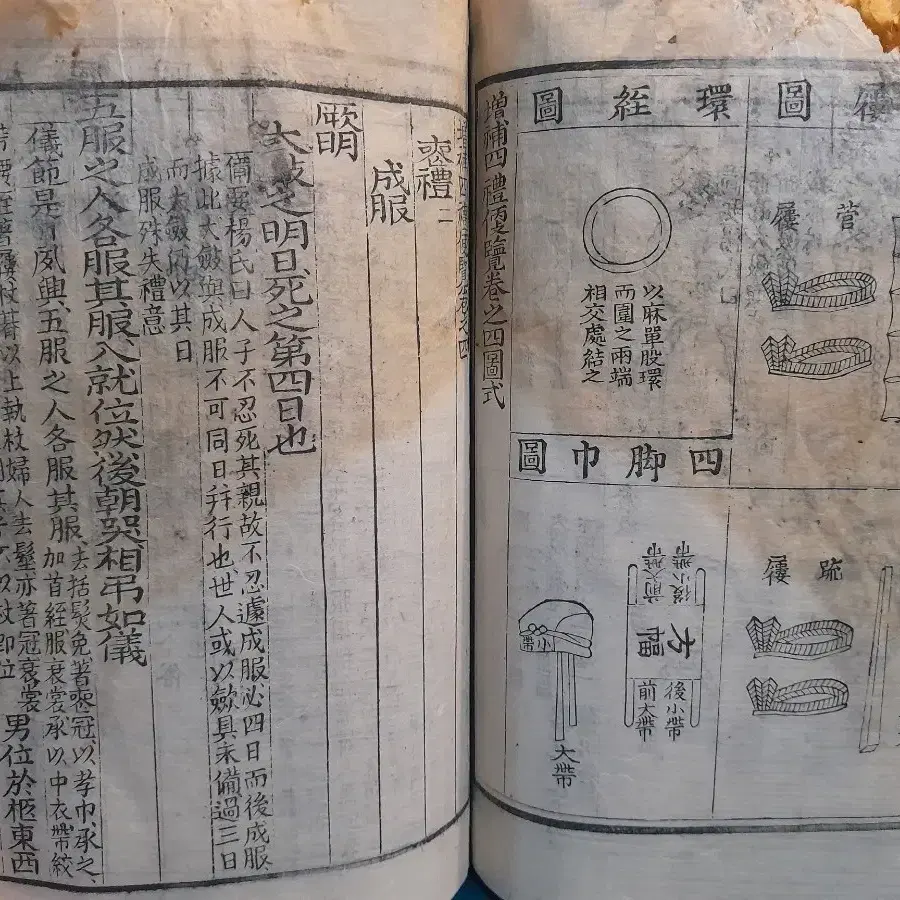 屨圖
菅屨
疏屨
環絰圖
以麻單股環
而圍之兩端
相交處結之
四脚巾圖
後小帶
前大帶
方幅
後小帶
前大帶
小帶
大帶
增補四禮便覽卷之四圖式
喪禮二
成服
厥明
大斂之明日死之第四日也
備要楊氏曰人子不忍死其親故不忍遽成服必四日而後成服
據此大斂與成服不可同日幷行也世人或以斂具未備過三日
而大斂仍以其日
成服殊失禮意
五服之人各服其服入就位然後朝哭相弔如儀
儀節是日夙興五服之人各服其服去括髮免著喪冠以孝巾承之
加首絰服衰裳承以中衣帶絞
腰絰著屨杖朞以上執杖婦人去髽亦著冠衰裳
男位於柩東西